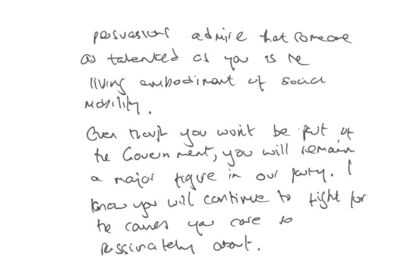 persuasions admire that someone
as talented as you is the
living embodiment of social
mobility.
Even though you won't be part of
the Government, you will remain
a major figure in our party. I
know you will continue to fight for
the causes you care so
passionately about.